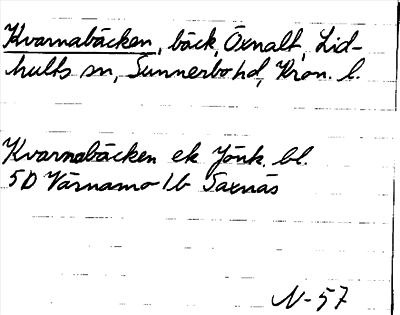 Kvarnabäcken, bäck, Öxnalt, Lid-
hults sn, Sunnerbo hd, Kron. l.
Kvarnabäcken ek Jönk. bl.
5D Värnamo 1b Saxnäs
N-57